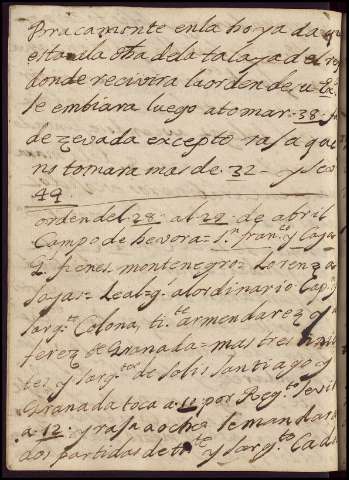 Bracamonte en la hoya da que
esta a la otra de la talaya del rey
donde recivira la orden de
se embiara luego a tomar 38 f
de zevada excepto rasa que
no tomara mas de 32 y se
49
orden del 28 al 29 de abril
Campo de hevora = s.n fran.co y Caya
q.l fienes, montenegro = Lorenzo
sayas = Leal = q.l al ordinario Cap
sarg.te Colona, ti.te armendarez y
ferez de Granada = mas tres
tes y sarg.tos de solis santiago y
Granada toca a 11 por Reg.to
a 12 y rasa a ocho se mandara
aos partidas de ti.te y sarg.to Cada